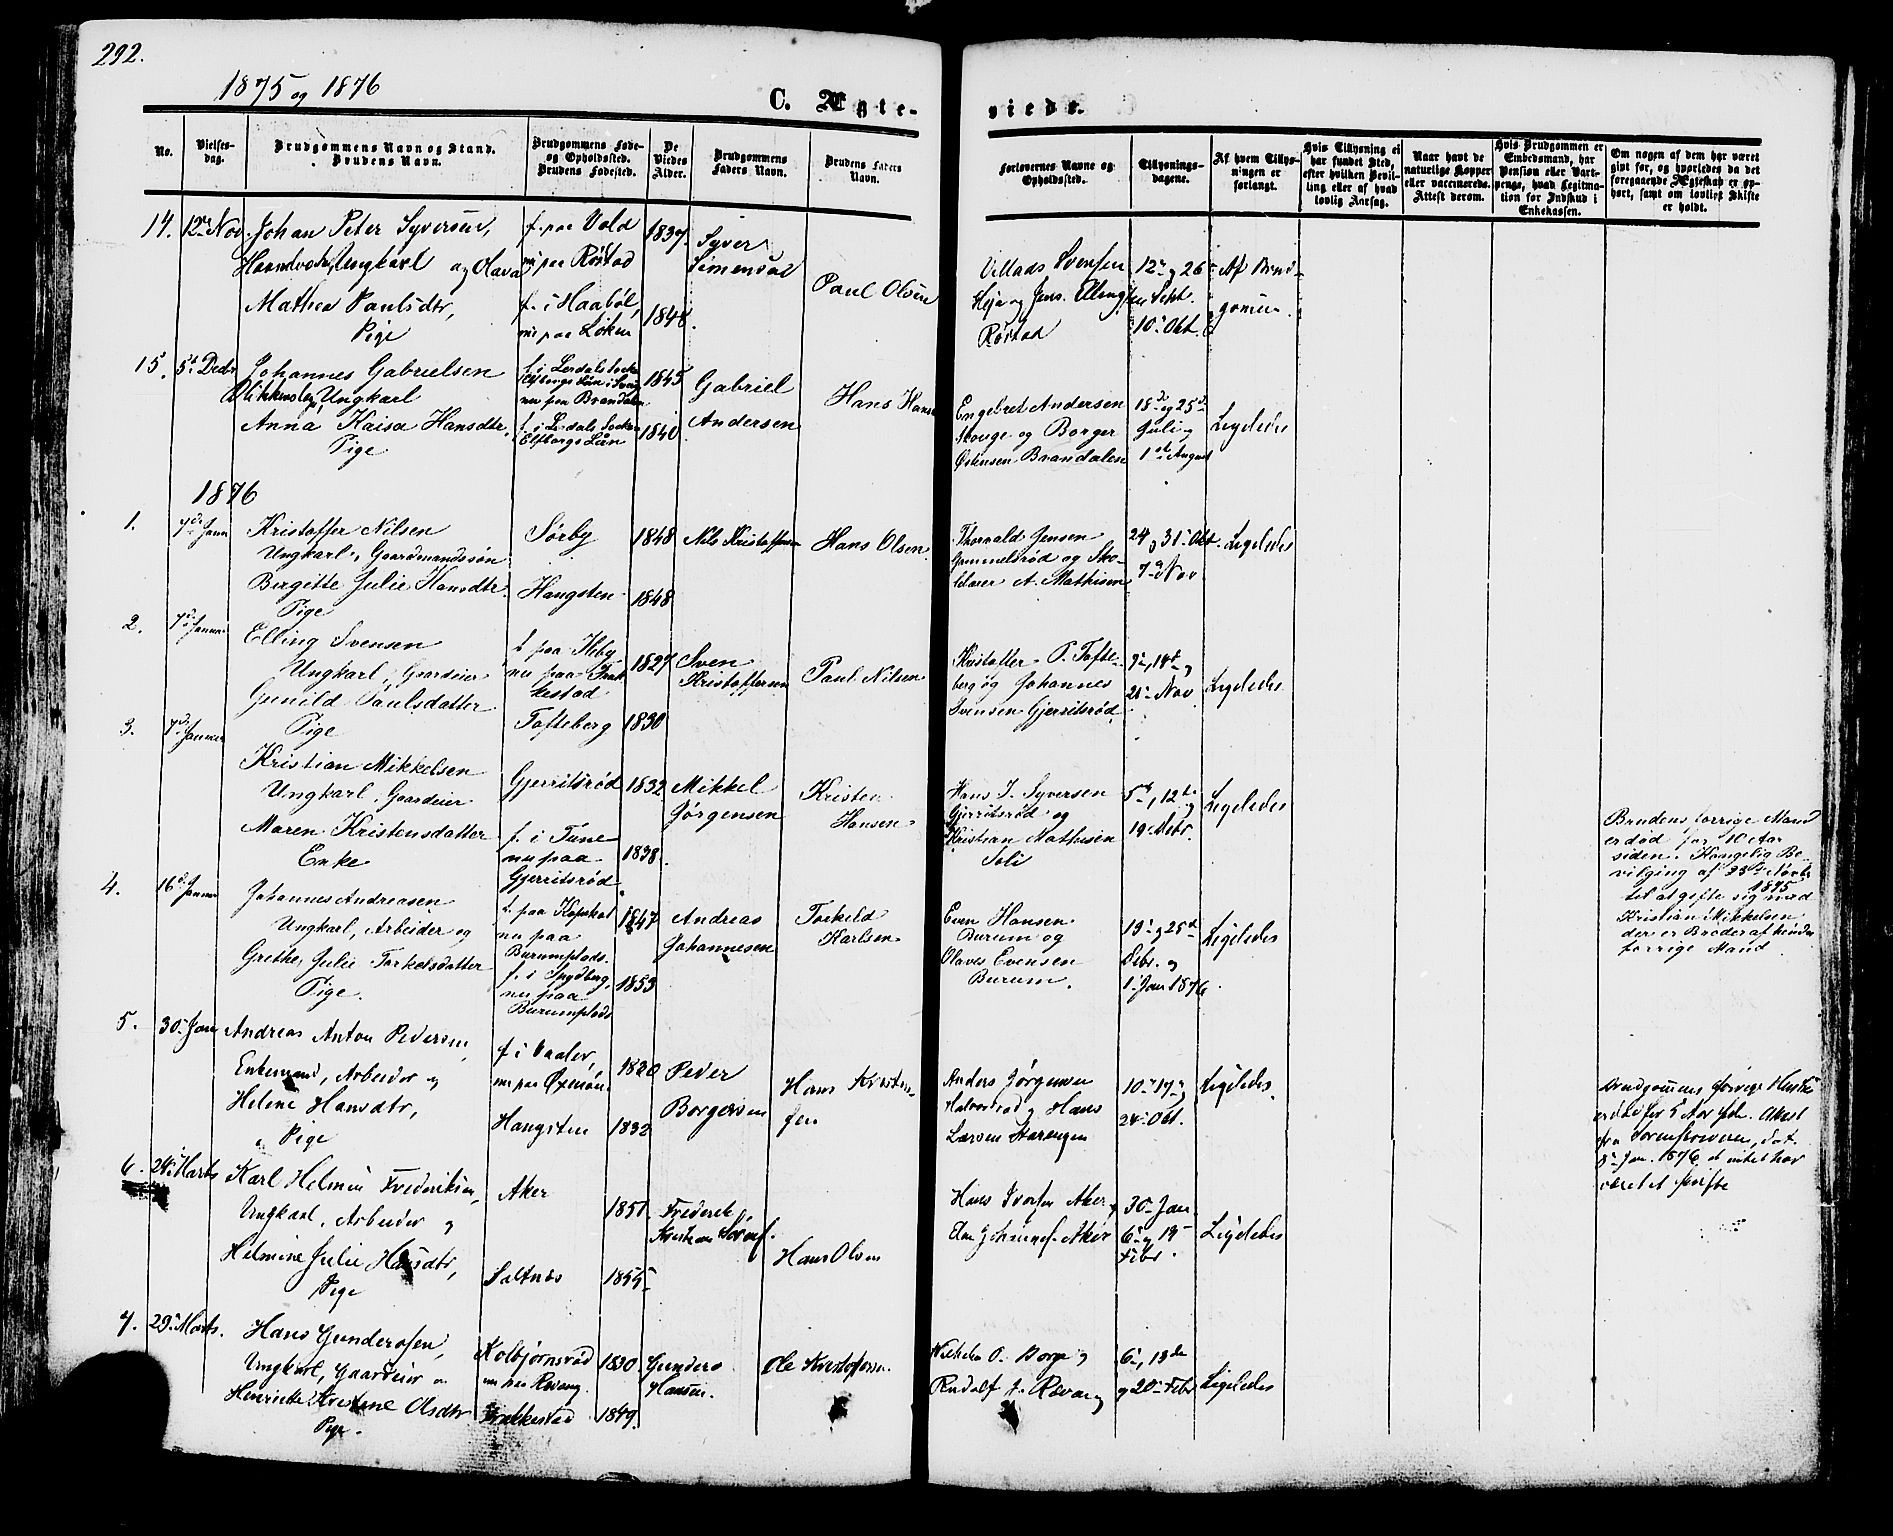 292.
1875 og 1876
C. Ægte-
viede.
No.
Vielses-
dag.
Brudgommens Navn og Stand.
Brudens Navn.
Brudgommens Føde-
og Opholdssted.
Brudens Fødested.
De
Viedes
Alder.
Brudgommens
Faders Navn.
Brudens Faders
Navn.
Forlovernes Navne og
Opholdssted.
Tillysnings-
dagene.
Af hvem Tillys-
ningen er
forlangt.
Hvis Tillysning ei
har fundet Sted,
efter hvilken Bevil-
ling eller af hvad
lovlig Aarsag.
Naar havt de
naturlige Kopper
eller vaccinerede.
Attest derom.
Hvis Brudgommen er
Embedsmand, har
Pension eller Vart-
penge, hvad Legitima-
tion for Indskud i
Enkekassen.
Om nogen af dem har været
gift før, og hvorledes da det
foregaaende Ægteskab er op-
hørt, samt om lovligt Skifte
er holdt.
14. 12te Nov. Johan Peter Syversen,
Ungkarl og Olava
Mathea Paulsdtr,
Pige
f. paa Vold
nu paa Rørstad
f. i Haabøl,
nu paa Løken
1837.
1848.
Syver
Simensen
Paul Olsen
Villads Svensen
Heja og Jens
Rørstad
12te, 26
Sept.
10de Okt.
Af Brud-
gommen
15. 5te Debr
Johannes Gabrielsen
Ungkarl
Anna Kaisa Hansdtr.
Pige
f. i Lerdals Socken
Elfborgs Län i Sverig
nu paa Brandalen
f. i Lerdals Socken
Elfborgs Län
1845
1840
Gabriel
Andersen
Hans Hans
Engebret Andersen
Skouge og Borger
Østensen Brandalen
18de og 25de
Juli og
1ste August
Ligeledes
1876
1. 7de Janu
Kristoffer Nilsen
Ungkarl, Gaardmandssøn
Birgitte Julie Hansdtr.
Pige
Sørby
Hangsten
1848
1848
Nils Kristoffersen
Hans Olsen
Thorvald Jensen
Gammelsrød og Sko-
lelærer A. Mathisen
24 og 31te Okt.
7de Nov
Ligeledes
2. 7de Januar
Elling Svensen
Ungkarl, Gaardeier
Gunild Paulsdatter
Pige
f. paa Heby
nu paa Frak-
kestad
Tofteberg
1827
1830
Sven
Kristoffersen
Paul Nilsen
Kristoffer P. Tofte-
berg og Johannes
Svensen Gjerritsrød
7de, 14de og
21de Nov
Ligeledes
3. 7de Januar
Kristian Mikkelsen
Ungkarl, Gaardeier
Maren Kristensdatter
Enke
Gjerritsrød
f. i Tune
nu paa
Gjerritsrød
1832
1838.
Mikkel
Jørgensen
Kristen
Hansen
Hans J. Syversen
Gjerritsrød og
Kristian Mathisen
Soli
5te, 12te
og
19de Debr.
Ligeledes
Brudens forrige Mand
er død for 10 Aar
siden. Kongelig Be-
vilging af 23de Novbr
1875
til at gifte sig med
Kristian Mikkelsen
der er Broder af hendes
forrige Mand
4. 16de Januar
Johannes Andreasen
Ungkarl, Arbeider og
Grethe Julie Torkelsdatter
Pige.
f. paa Kopskat
nu paa
Burumplads.
f. i Spydberg,
nu paa
Burumplads
1847
1853
Andreas
Johannesen
Torkeld
Karlsen
Even Hansen
Burum og
Olaves Evensen
Burum.
19de og 25de
Debr. og
1. Jan 1876.
Ligeledes
5. 30te Jan
Andreas Anton Pedersen,
Enkemand, Arbeider og
Helene Hansdtr,
Pige
f. i Vaaler,
nu paa Øxenøen
Hangsten
1820
1832
Peder
Borgersen
Hans Kristen-
sen
Anders Jørgensen
Halvorsrød og Hans
Larsen Starengen
10de 17de og
24de Okt.
Ligeledes.
Brudgommens forrige Hustru
er død for 5 Aar siden. Attest
fra Sorenskriveren, dat.
8de Jan. 1876, at intet har
været at skifte
6. 26de Marts
Karl Helmin Frederiksen,
Ungkarl, Arbeider og
Helmine Julie Hansdtr,
Pige
Aker
Saltnæs
1851
1855
Frederik
Kristian
Hans Olsen
Hans Iversen Aker og
Aker
30te Jan
6te og 13
Febr.
Ligeledes
7. 29de Marts.
Hans Gundersen,
Ungkarl, Gaardeier og
Henriette Kristine Olsdtr
Pige.
Kolbjørnsrød
nu paa Revaug
Frakkestad
1830
1849.
Gunders
Hansen.
Ole Kristoffersen
Vilhelm O. Borge og
Rudolf J. Revaug
6te, 13de
og 20de Febr.
Ligeledes